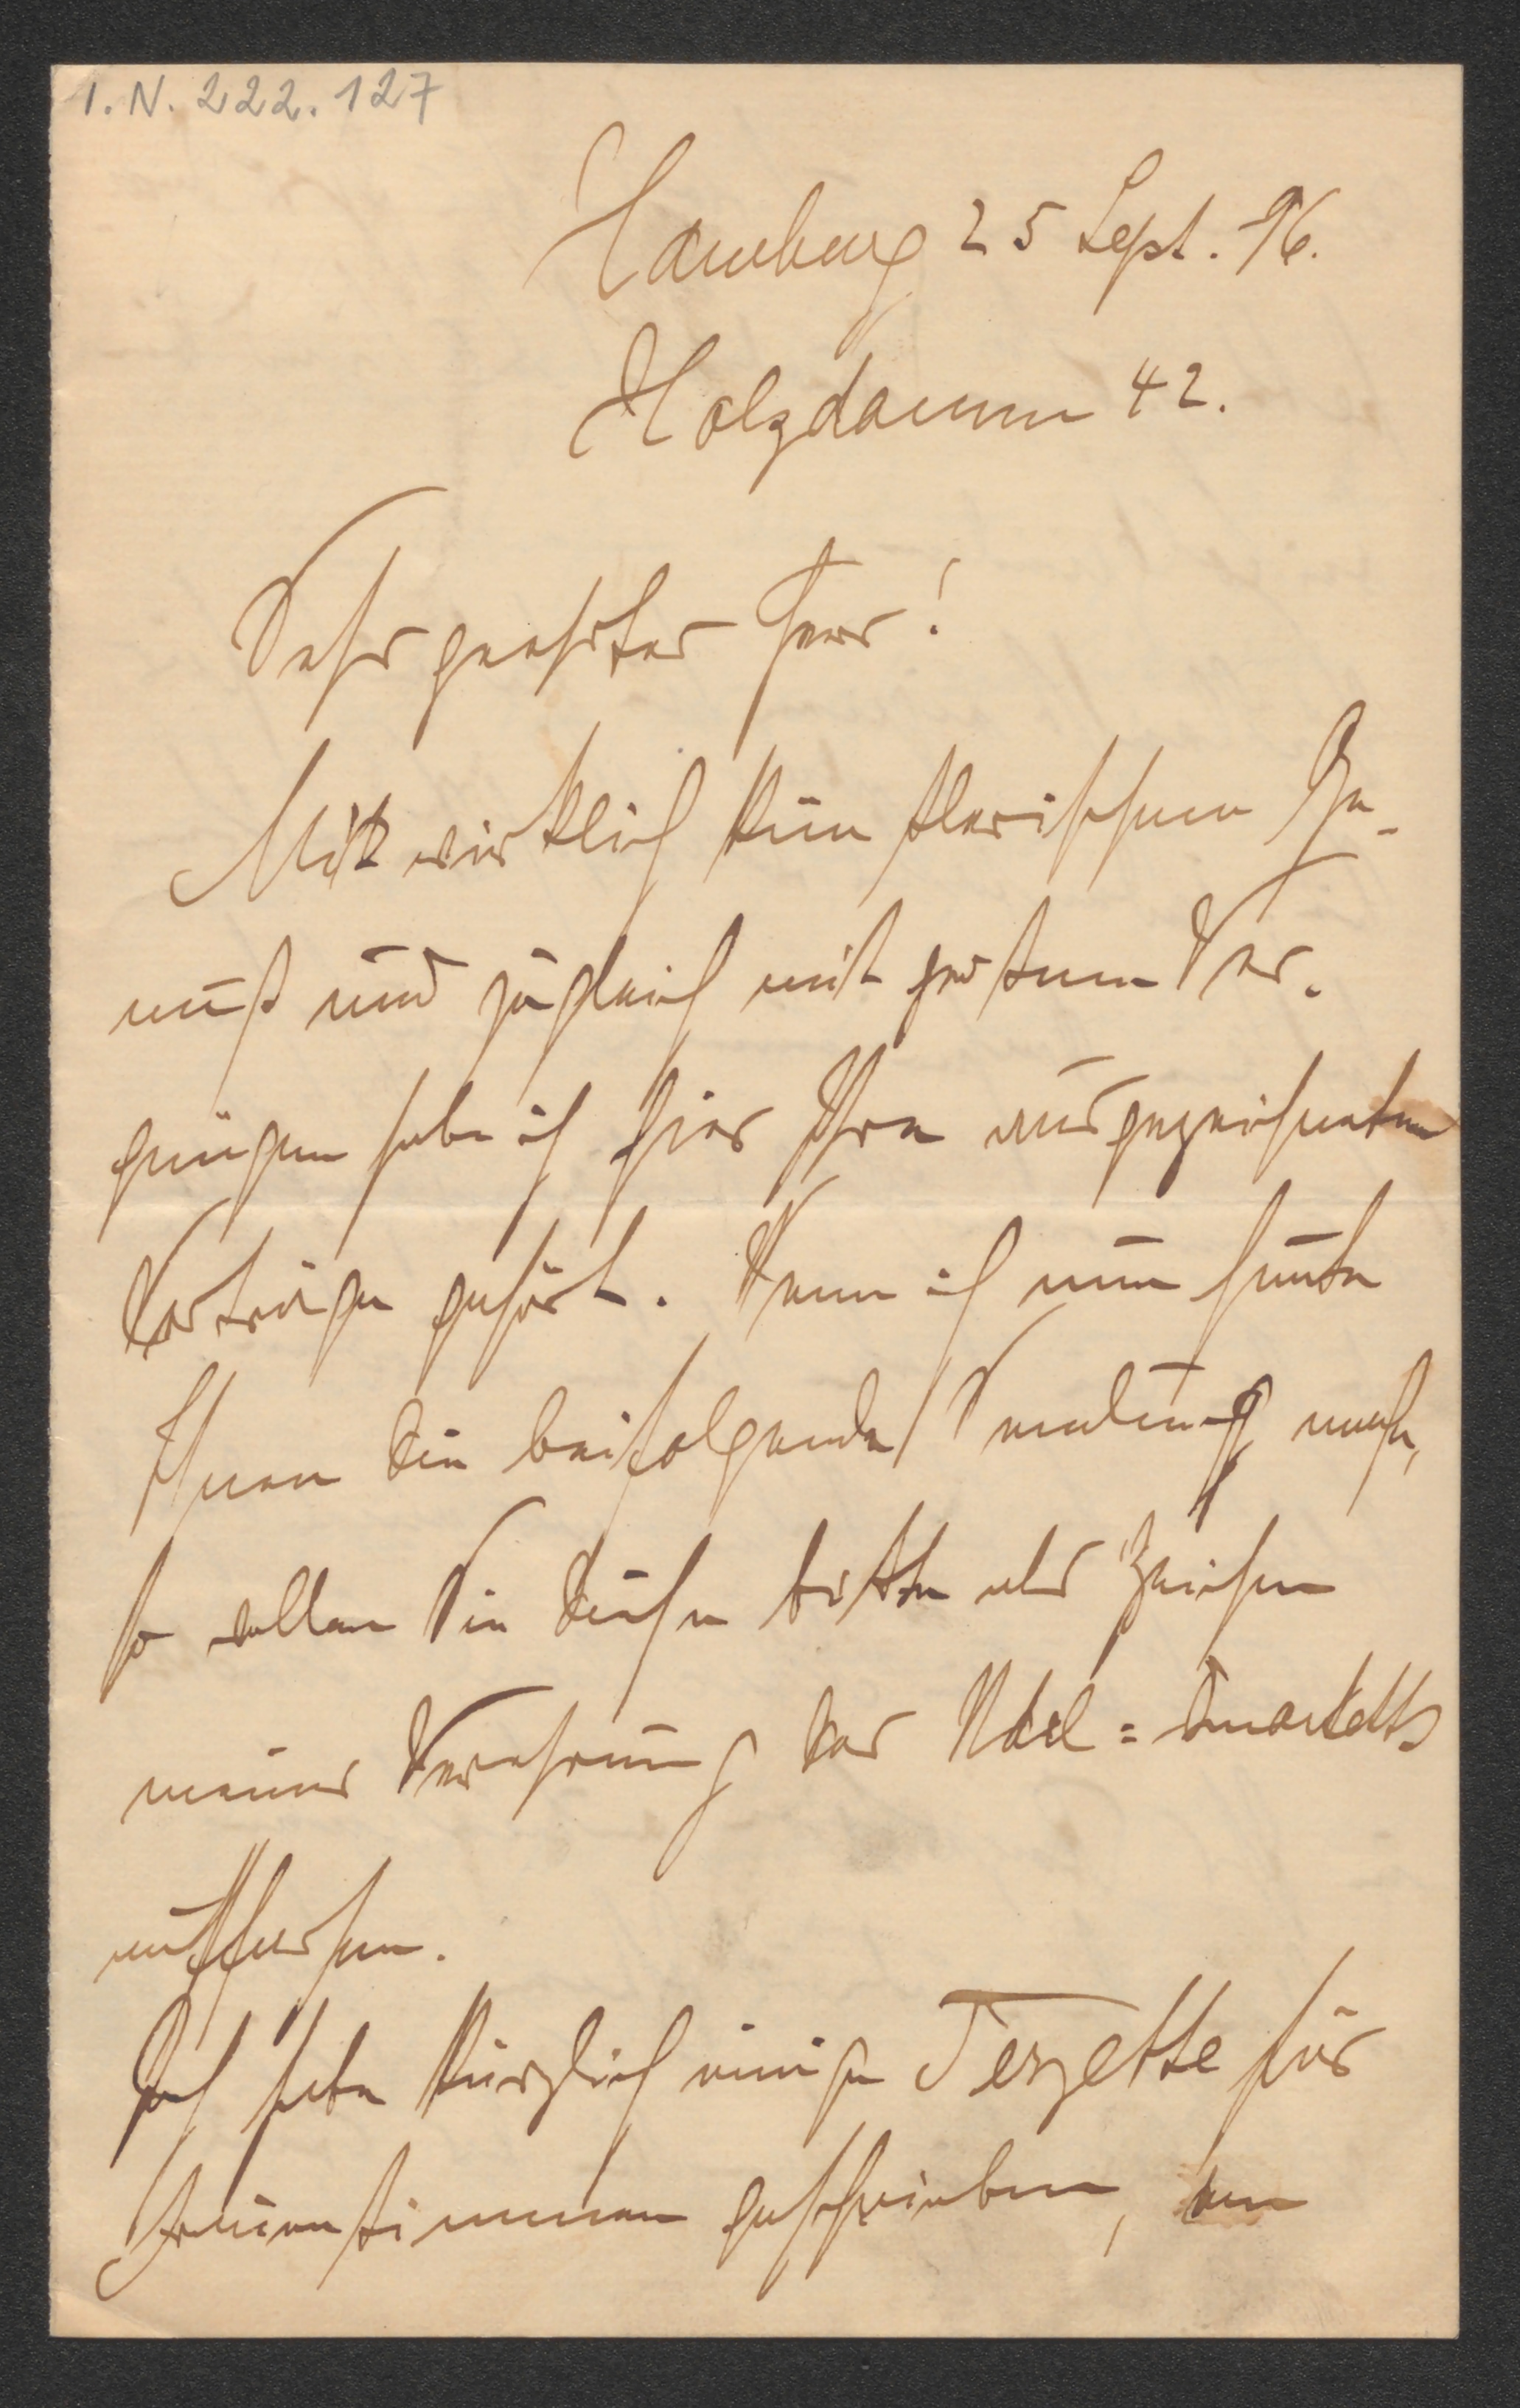 I.N. 222.127
Hamburg 25 Sept. 96.
Holzdamm 42.
Sehr geehrter Herr!
Mit wirklich künstlerischem Ge-
nuß und zugleich mit großem Ver-
gnügen habe ich hier Ihre ausgezeichneten
Vorträge gehört. Wenn ich nun heute
Ihnen die beifolgende Sendung mache,
so wollen Sie diese bitte als Zeichen
meiner Verehrung des Udel-Quartetts
auffassen.
Ich habe kürzlich einige Terzette für
Frauenstimmen geschrieben,